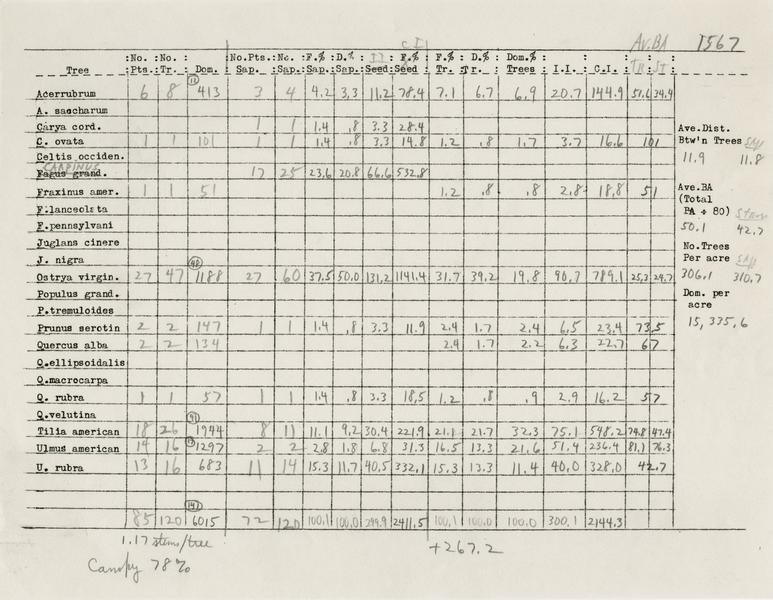 Av.BA 1567
C I
:No. :No. : :No.Pts.:No. :F.% :D.% : I I : F.% :F.% :D.% :Dom.% : : :
Tree :Pts.:Tr. : Dom. : Sap. :Sap.:Sap.:Sap.:Seed:Seed : Tr. :Tr. :Trees : I.I.: C.I. : TR : II :
13
Acerrubrum 6 8 413 3 4 4.2 3.3 11.2 78.4 7.1 6.7 6.9 20.7 144.9 51.6 34.9
A. saccharum
Carya cord. 1 1 1.4 .8 3.3 28.4
C. ovata 1 1 101 1 1 1.4 .8 3.3 14.8 1.2 .8 1.7 3.7 16.6 101
Celtis occiden.
CARPINUS
Fagus grand. 17 25 23.6 20.8 66.6 532.8
Fraxinus amer. 1 1 51 1.2 .8 .8 2.8 18.8 51
F.lanceolata
F.pennsylvani
Juglans cinere
J. nigra
48
Ostrya virgin. 27 47 1188 27 60 37.5 50.0 131.2 1141.4 31.7 39.2 19.8 90.7 789.1 25.3 24.7
Populus grand.
P.tremuloides
Prunus serotin 2 2 147 1 1 1.4 .8 3.3 11.9 2.4 1.7 2.4 6.5 23.4 73.5
Quercus alba 2 2 134 2.4 1.7 2.2 6.3 22.7 67
Q.ellipsoidalis
Q.macrocarpa
Q. rubra 1 1 57 1 1 1.4 .8 3.3 18.5 1.2 .8 .9 2.9 16.2 57
Q.velutina
41
Tilia american 18 26 1944 8 11 11.1 9.2 30.4 221.9 21.1 21.7 32.3 75.1 548.2 74.8 47.4
Ulmus american 14 16 1297 2 2 2.8 1.8 6.8 31.3 16.5 13.3 21.6 51.4 236.4 81.1 76.3
U. rubra 13 16 683 11 14 15.3 11.7 40.5 332.1 15.3 13.3 11.4 40.0 328.0 42.7
141
85 120 6015 72 120 100.1 100.0 299.9 2411.5 100.1 100.0 100.0 300.1 2144.3
1.17 stems/tree
+267.2
Canopy 78%
Ave.Dist.
Btw'n Trees Sap
11.9 11.8
Ave.BA
(Total
BA ÷ 80) Stems
50.1 42.7
No.Trees
Per acre Sap
306.1 310.7
Dom. per
acre
15,335.6